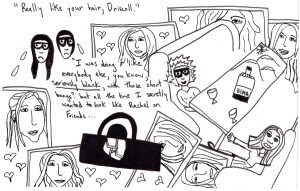 "Really like your hair, Driscoll."
I was doing it like
everybody else, you know,
"seriously black, with those short
bangs," but all the time I secretly
wanted to look like Rachel on
Friends...